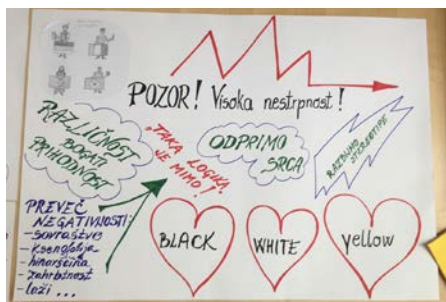 POZOR! Visoka nestrpnost!
RAZLIČNOST
BOGATI
PRIHODNOST
"TAKA LOGIKA
JE MIMO!"
ODPRIMO
SRCA
RAZBIJMO
STEREOTIPE
PREVEČ
NEGATIVNOSTI:
- sovraštvo
- ksenofobija
- hinavščina
- zahrbtnost
- laži ...
BLACK
WHITE
yellow